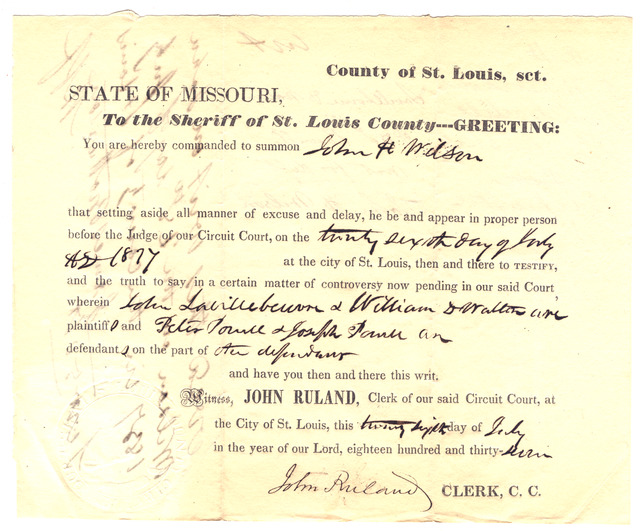 County of St. Louis, sct.
STATE OF MISSOURI,
To the Sheriff of St. Louis County---GREETING:
You are hereby commanded to summon John H Wilson
that setting aside all manner of excuse and delay, he be and appear in proper person
before the Judge of our Circuit Court, on the twenty sixth day of July
AD 1837 at the city of St. Louis, then and there to TESTIFY,
and the truth to say, in a certain matter of controversy now pending in our said Court
wherein John & William D Walton are
plaintiffs and Peter Powell & Joseph Powell are
defendants on the part of the defendant
and have you then and there this writ.
Witness, JOHN RULAND, Clerk of our said Circuit Court, at
the City of St. Louis, this twenty sixth day of July
in the year of our Lord, eighteen hundred and thirty-seven
John Ruland CLERK, C. C.